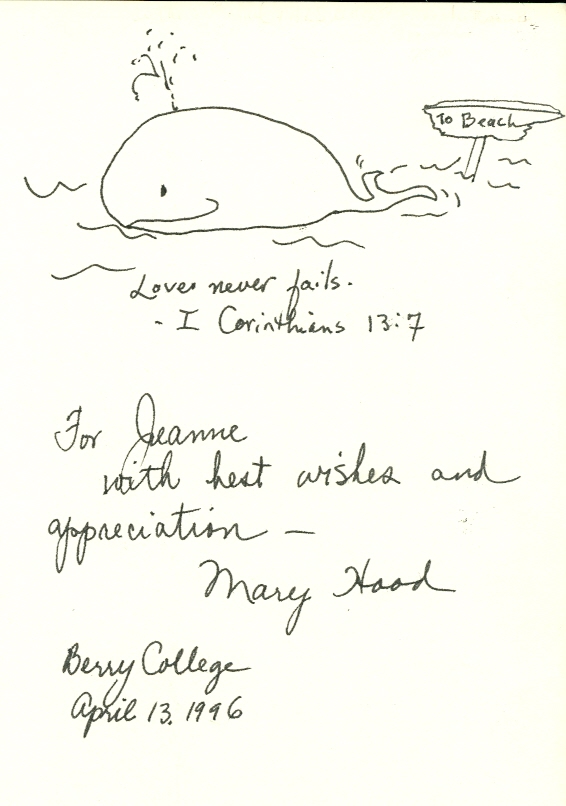 To Beach
Love never fails.
- I Corinthians 13:7
For Jeanne
with best wishes and
appreciation —
Mary Hood
Berry College
April 13, 1996